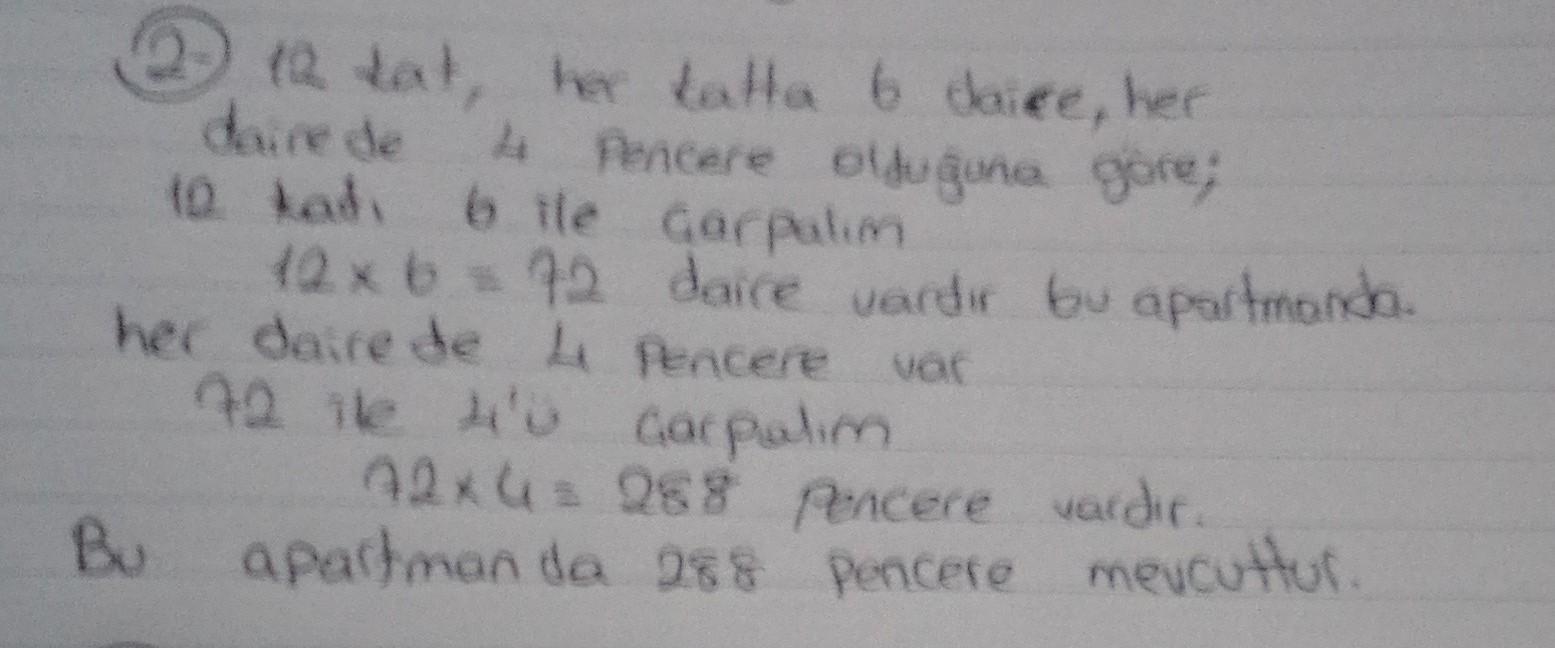 2- 12 kat, her katta 6 daire, her
dairede 4 Pencere olduğuna göre;
12 katı 6 ile Çarpalım
12 x 6 = 72 daire vardır bu apartmanda.
her dairede 4 Pencere var
72 ile 4'ü Çarpalım
72 x 4 = 288 Pencere vardır.
Bu apartmanda 288 pencere mevcuttur.